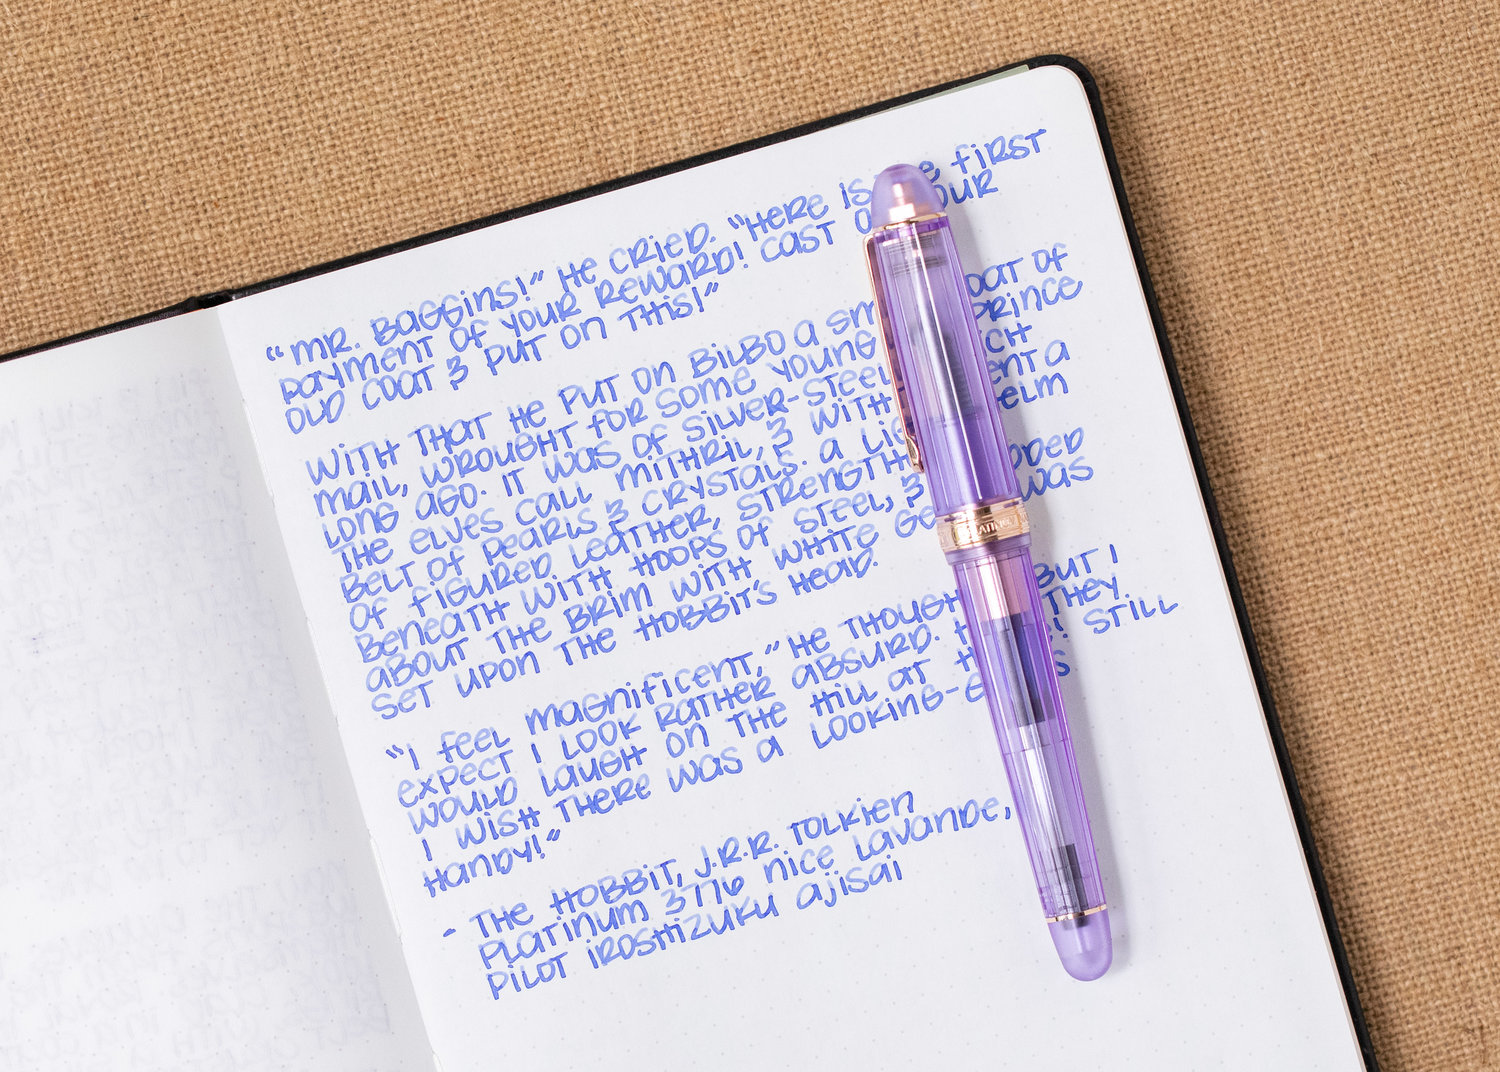 “Mr. Baggins!” he cried. “Here is first
payment of your reward! Cast
old coat & put on this!”
With that he put on Bilbo a
mail, wrought for some young Prince
long ago. It was of silver-steel
the elves call mithril, & with a
belt of pearls & crystals. A
of figured leather, strength
beneath with hoops of steel, &
about the brim with white was
set upon the hobbit's head.
“I feel magnificent,” he But I
expect I look rather absurd. They
would laugh on the hill at Still
I wish there was a
handy!”
- The Hobbit, J.R.R. Tolkien
Platinum 3776 Nice Lavande,
Pilot Iroshizuku Ajisai